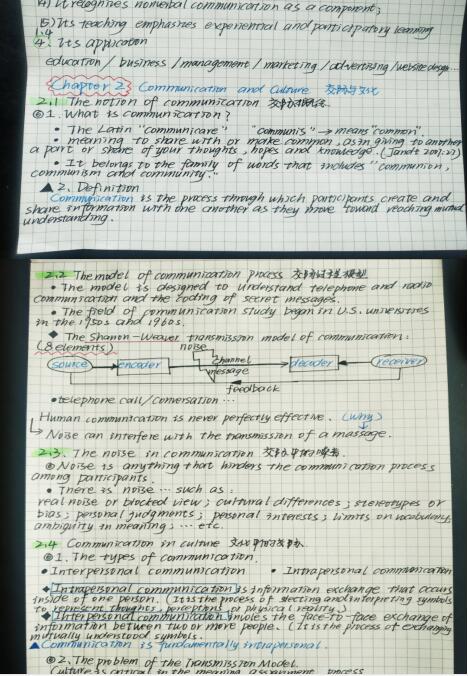 (4) It recognizes nonverbal communication as a component;
(5) Its teaching emphasizes experiential and participatory learning
1.4
4. Its application
education / business / management / marketing / advertising / website design...
Chapter 2 Communication and Culture 交际与文化
2.1 The notion of communication 交际的概念
◎1. What is communication?
• The Latin "communicare" "communis" → means "common".
• meaning to share with or make common, as in giving to another
a part or share of your thoughts, hopes and knowledge. (Jandt 2001:27)
• It belongs to the family of words that includes "communion,
communism and community."
▲2. Definition
Communication is the process through which participants create and
share information with one another as they move toward reaching mutual
understanding.
2.2 The model of communication process 交际过程模型
• The model is designed to understand telephone and radio
communication and the coding of secret messages.
• The field of communication study began in U.S. universities
in the 1950s and 1960s.
◆ The Shanon-Weaver transmission model of communication:
(8 elements) noise
source encoder channel decoder receiver
message
feedback
• telephone call / conversation ...
Human communication is never perfectly effective. (why)
Noise can interfere with the transmission of a massage.
2.3. The noise in communication 交际中的噪音
◎ Noise is anything that hinders the communication process
among participants.
• There is noise ... such as:
real noise or blocked view; cultural differences; stereotypes or
bias; personal judgments; personal interests; limits on vocabulary,
ambiguity in meaning; ... etc.
2.4 Communication in culture 文化中的交际
◎1. The types of communication.
• Interpersonal communication • Intrapersonal communication
◆ Intrapersonal communication is information exchange that occurs
inside of one person. (It is the process of selecting and interpreting symbols
to represent thoughts, perceptions, or physical reality.)
◆ Interpersonal communication involes the face-to-face exchange of
information between two or more people. (It is the process of exchanging
mutually understood symbols.
▲ Communication is fundamentally intrapersonal.
◎2. The problem of the Transmission Model.
Culture is critical in the meaning assignment process